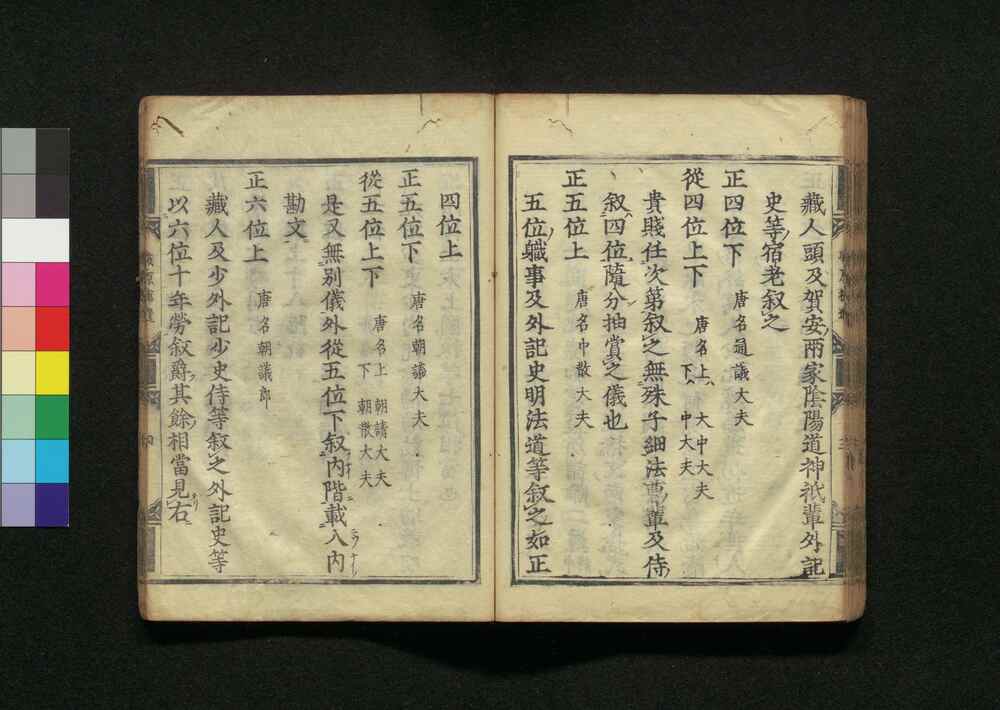 藏人頭及賀安兩家陰陽道神祇輩外記
史等宿老叙之
正四位下 唐名通議大夫
從四位上下 唐名上 大中大夫
下 中大夫
貴賤任次第叙之無殊子細法曹輩及侍
叙四位隨分抽賞之儀也
正五位上 唐名中散大夫
五位軄事及外記史明法道等叙之如正
四位上
正五位下 唐名朝議大夫
從五位上下 唐名上 朝請大夫
下 朝散大夫
是又無別儀外從五位下叙内階載入内
勘文
正六位上 唐名朝議郎
藏人及少外記少史侍等叙之外記史等
以六位十年勞叙爵其餘相當見右